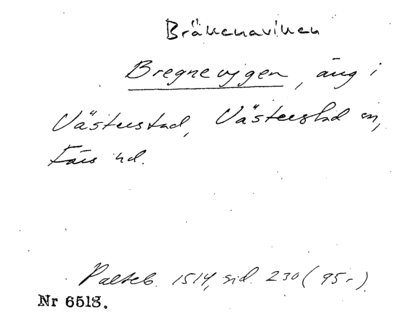 Bräkenaviken
Bregnevygen, äng i
Västerstad, Västerstad sn,
Färs hd.
Palteb. 1514, sid. 230 (95-)
Nr 6513.